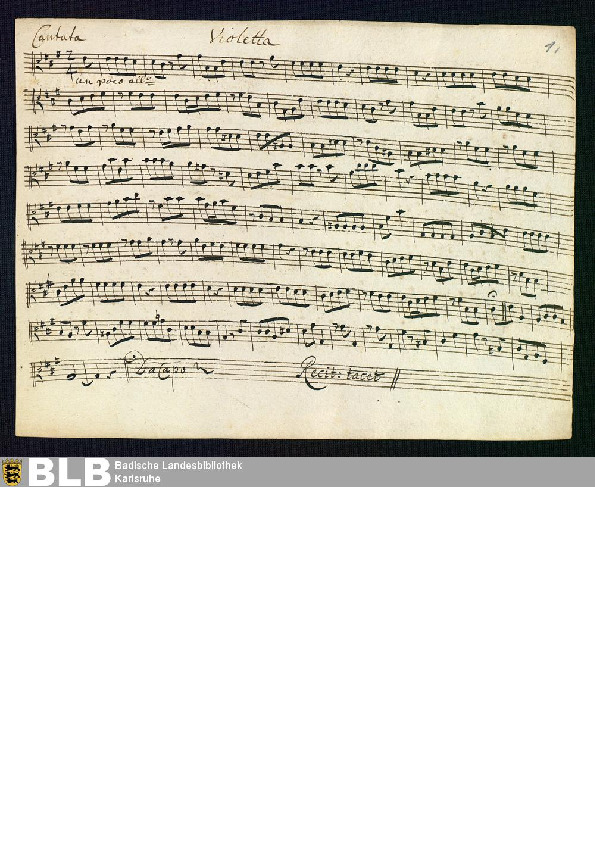 Cantata Violetta
un poco all:o
Da Capo
Recit: tacet
BLB Badische Landesbibliothek
Karlsruhe